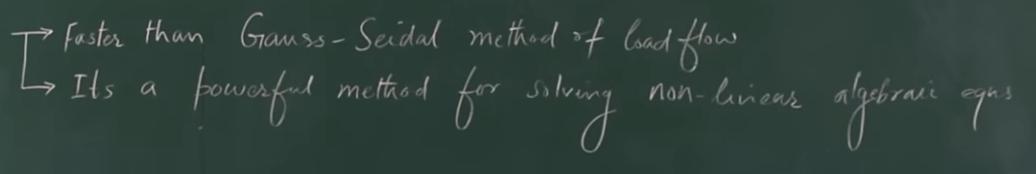 → Faster than Gauss-Seidal method of load flow
→ Its a powerful method for solving non-linear algebraic eqns